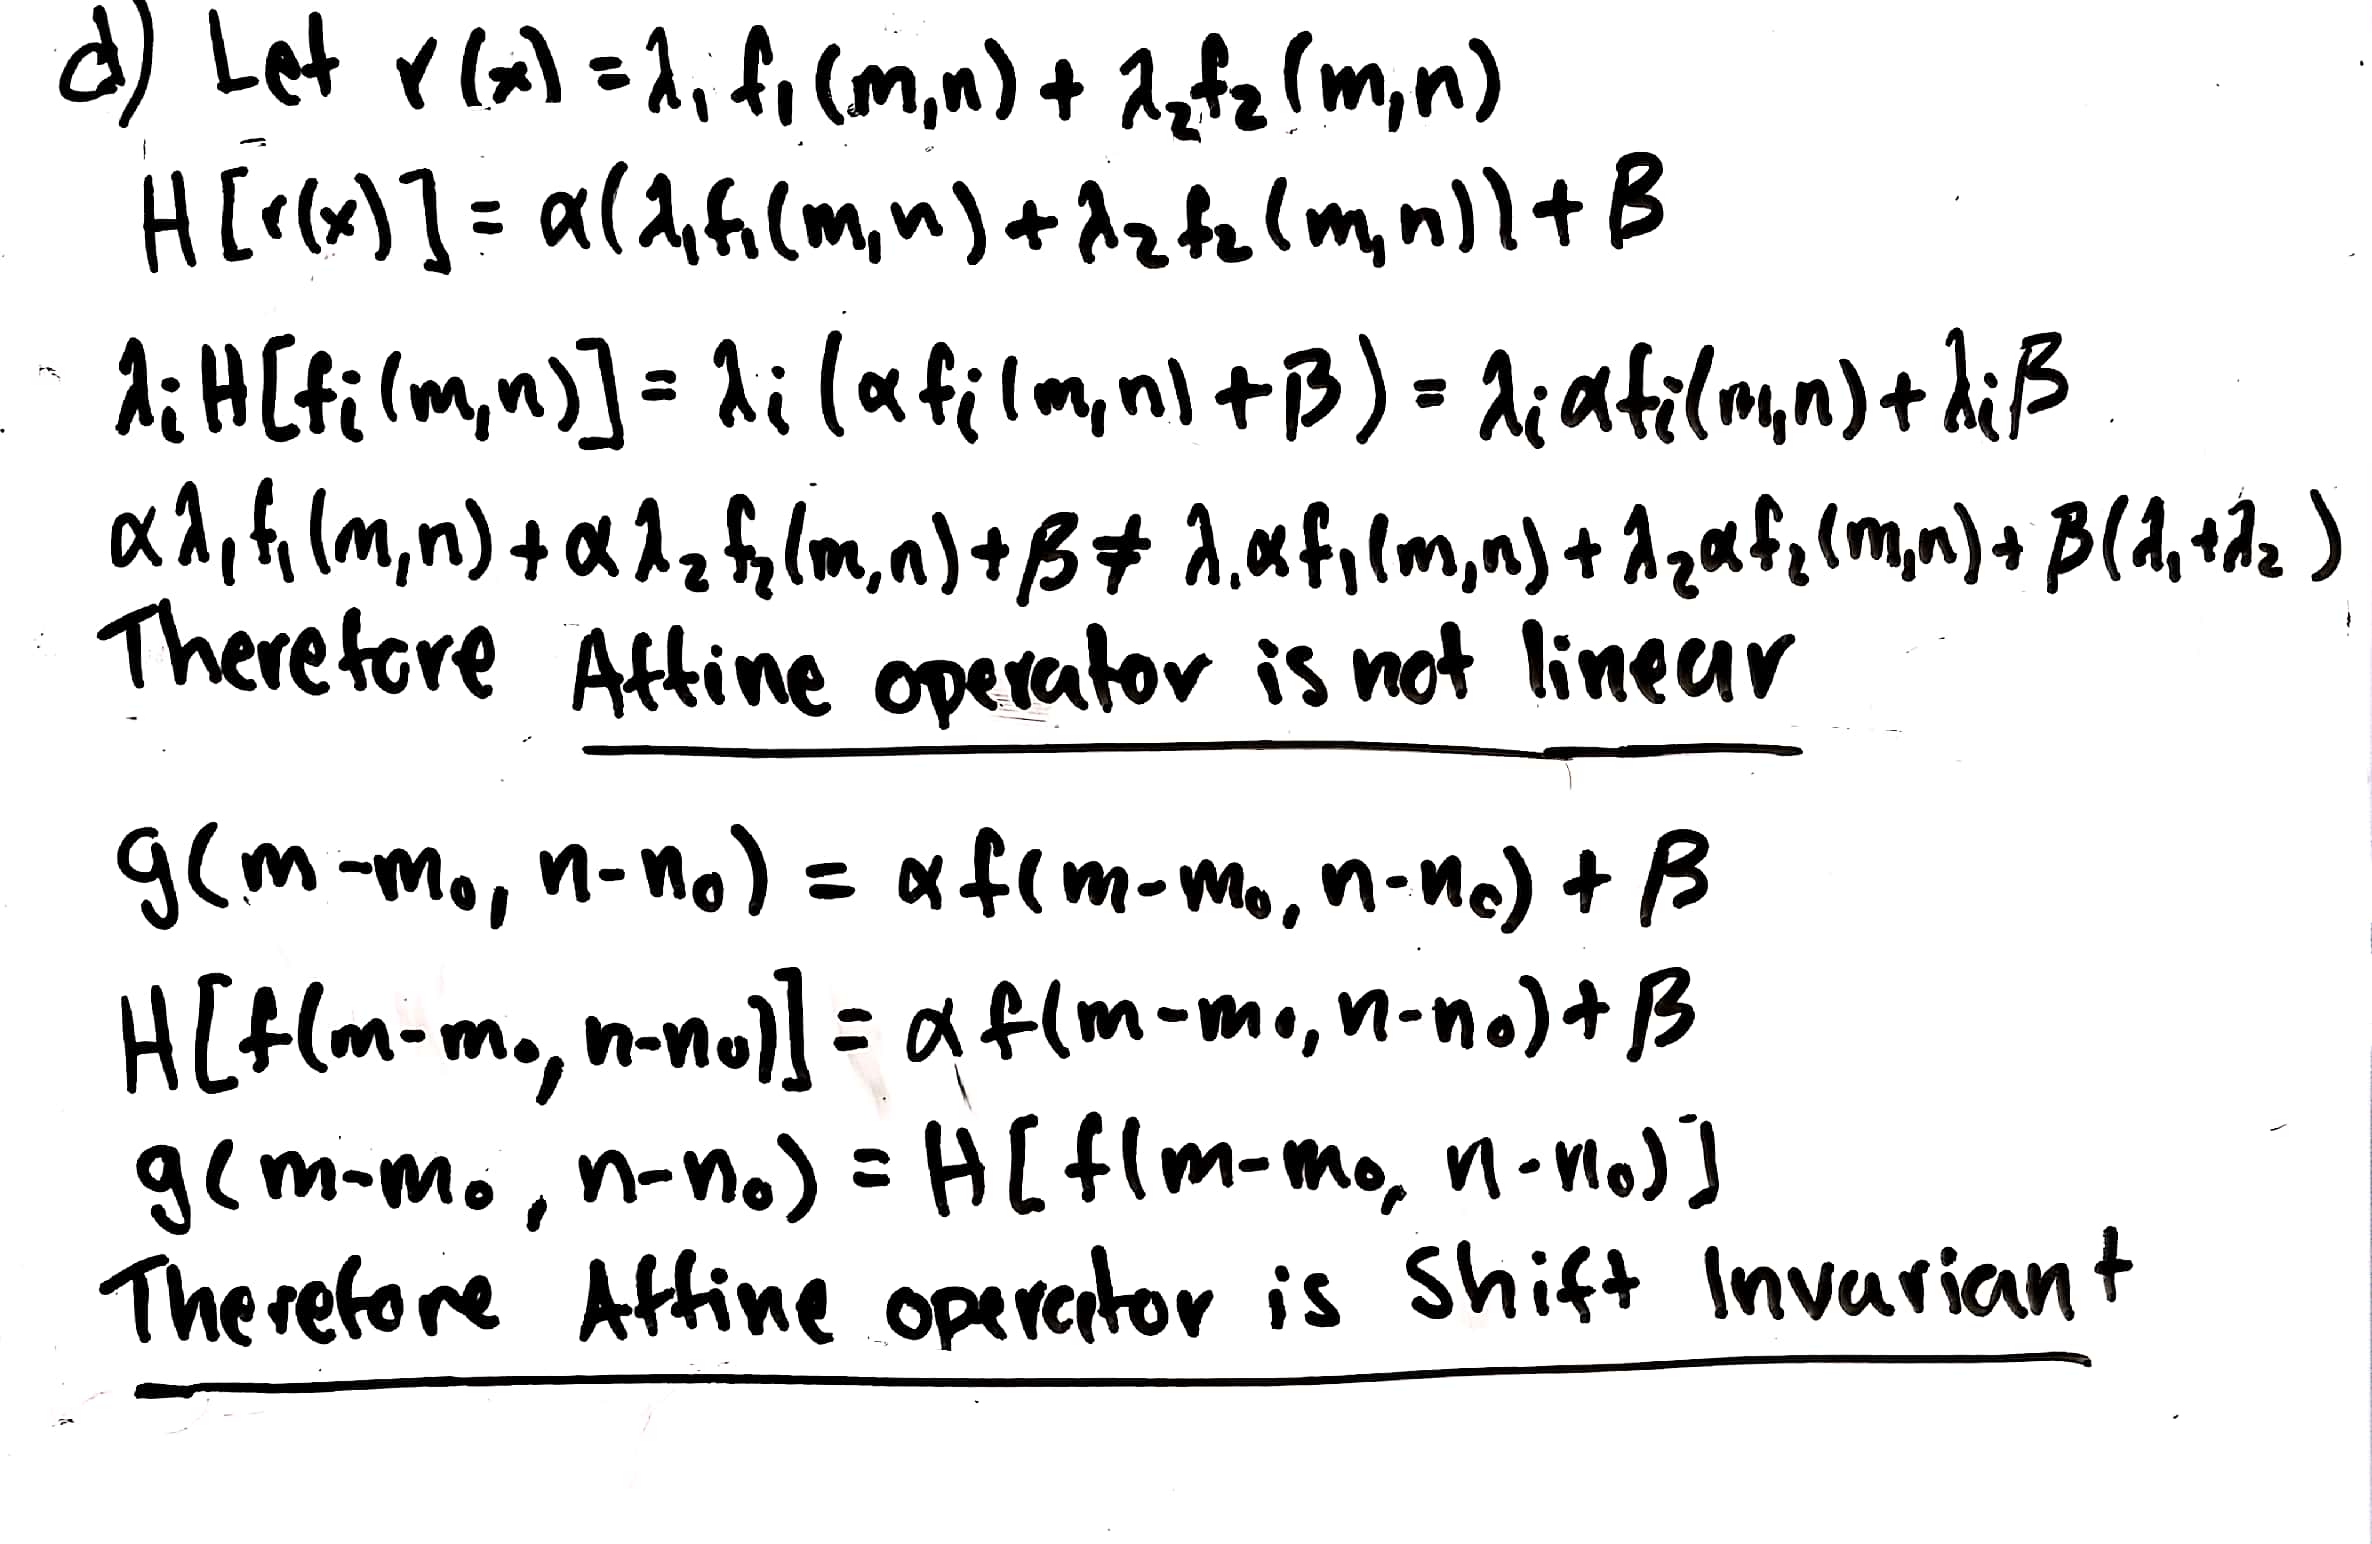 d) Let r(x) = λ₁f₁(m,n) + λ₂f₂(m,n)
H[r(x)] = α(λ₁f₁(m,n) + λ₂f₂(m,n)) + β
λᵢH[fᵢ(m,n)] = λᵢ(αfᵢ(m,n) + β) = λᵢαfᵢ(m,n) + λᵢβ
αλ₁f₁(m,n) + αλ₂f₂(m,n) + β ≠ λ₁αf₁(m,n) + λ₂αf₂(m,n) + β(λ₁+λ₂)
Therefore Affine operator is not linear
g(m-m₀, n-n₀) = αf(m-m₀, n-n₀) + β
H[f(m-m₀, n-n₀)] = αf(m-m₀, n-n₀) + β
g(m-m₀, n-n₀) = H[f(m-m₀, n-n₀)]
Therefore Affine operator is Shift Invariant